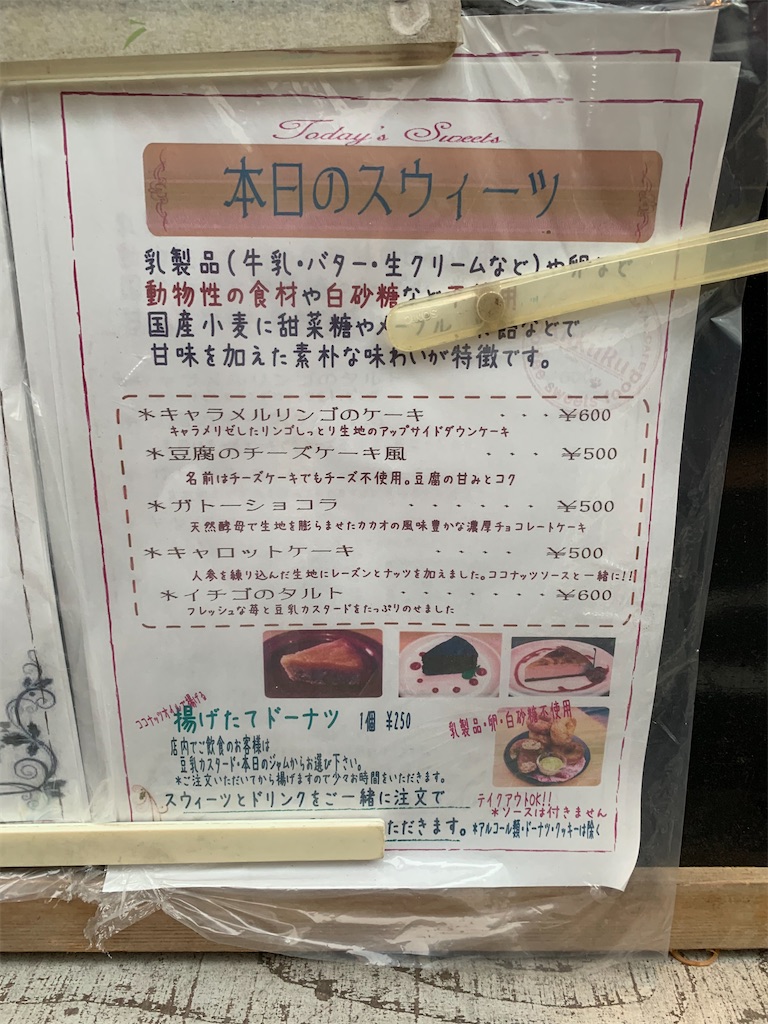 Today's Sweets
本日のスウィーツ
乳製品(牛乳・バター・生クリームなど)や卵など
動物性の食材や白砂糖など
国産小麦に甜菜糖やメープル、 などで
甘味を加えた素朴な味わいが特徴です。
*キャラメルリンゴのケーキ ・・・¥600
キャラメリゼしたリンゴしっとり生地のアップサイドダウンケーキ
*豆腐のチーズケーキ風 ・・・ ¥500
名前はチーズケーキでもチーズ不使用。豆腐の甘みとコク
*ガトーショコラ ・・・・・ ¥500
天然酵母で生地を膨らませたカカオの風味豊かな濃厚チョコレートケーキ
*キャロットケーキ ・・・・ ¥500
人参を練り込んだ生地にレーズンとナッツを加えました。ココナッツソースと一緒に!!
*イチゴのタルト ・・・・・・・¥600
フレッシュな苺と豆乳カスタードをたっぷりのせました
ココナッツオイルで揚げる
揚げたてドーナツ 1個 ¥250
乳製品・卵・白砂糖不使用
店内でご飲食のお客様は
豆乳カスタード・本日のジャムからお選び下さい。
*ご注文いただいてから揚げますので少々お時間をいただきます。
テイクアウトOK!!
*ソースは付きません
スウィーツとドリンクをご一緒に注文で
ただきます。*アルコール類・ドーナツ・クッキーは除く